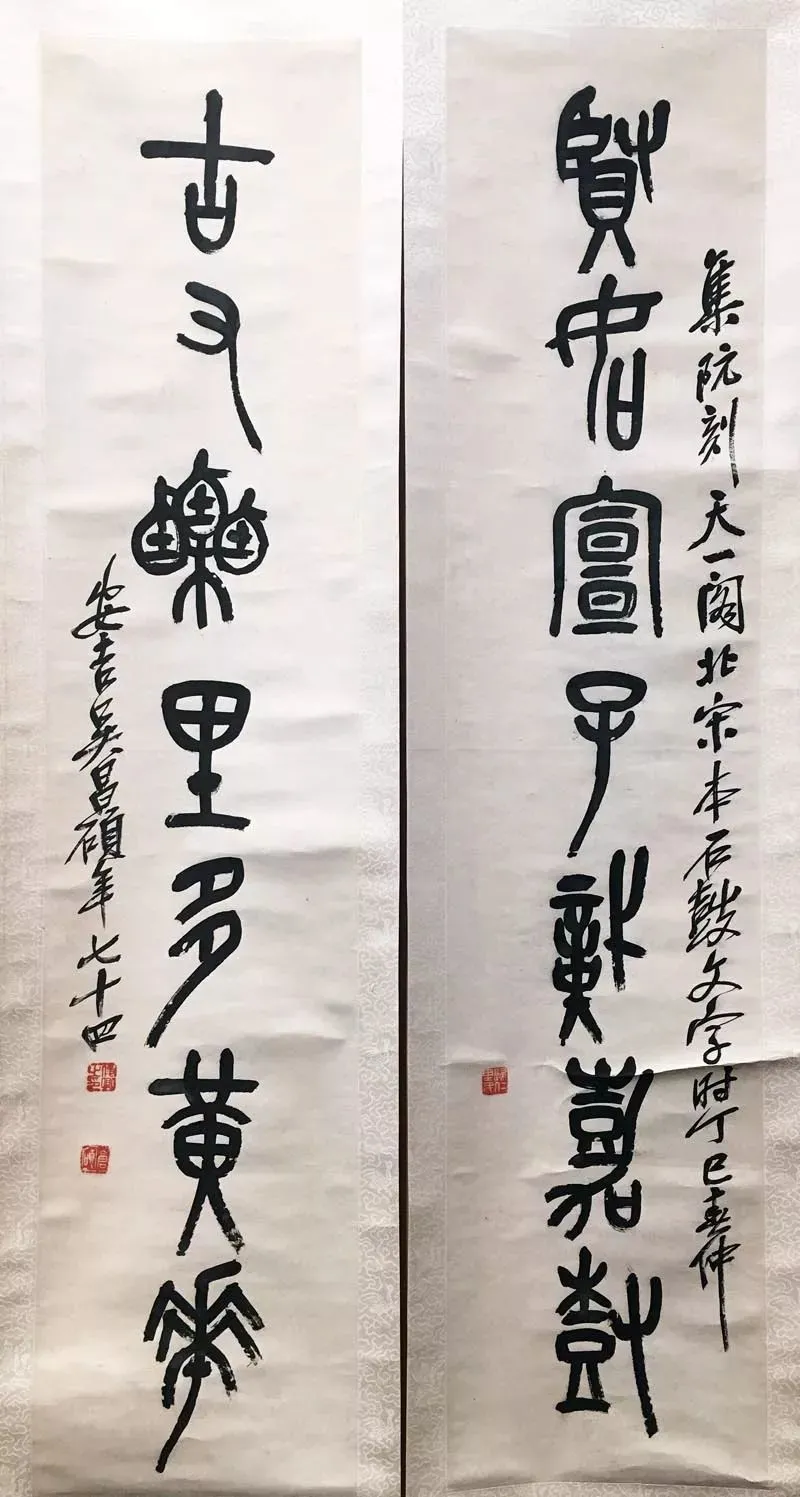 賢如宣子識嘉樹
集阮刻天一閣北宋本石鼓文字時丁巳春仲
古又栗里多黃華
安吉吳昌碩年七十四